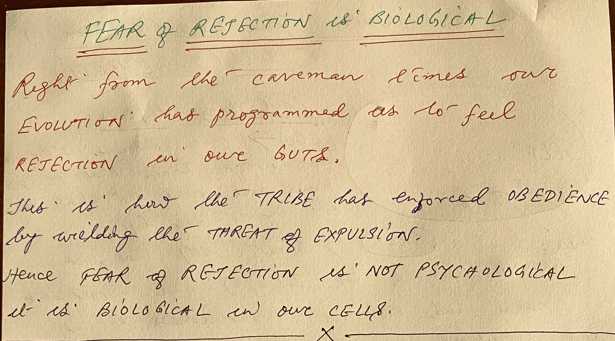 FEAR of REJECTION is BIOLOGICAL
Right from the caveman times our
EVOLUTION has programmed us to feel
REJECTION in our GUTS.
This is how the TRIBE has enforced OBEDIENCE
by wielding the THREAT of EXPULSION.
Hence FEAR of REJECTION is NOT PSYCHOLOGICAL
it is BIOLOGICAL in our CELLS.
X